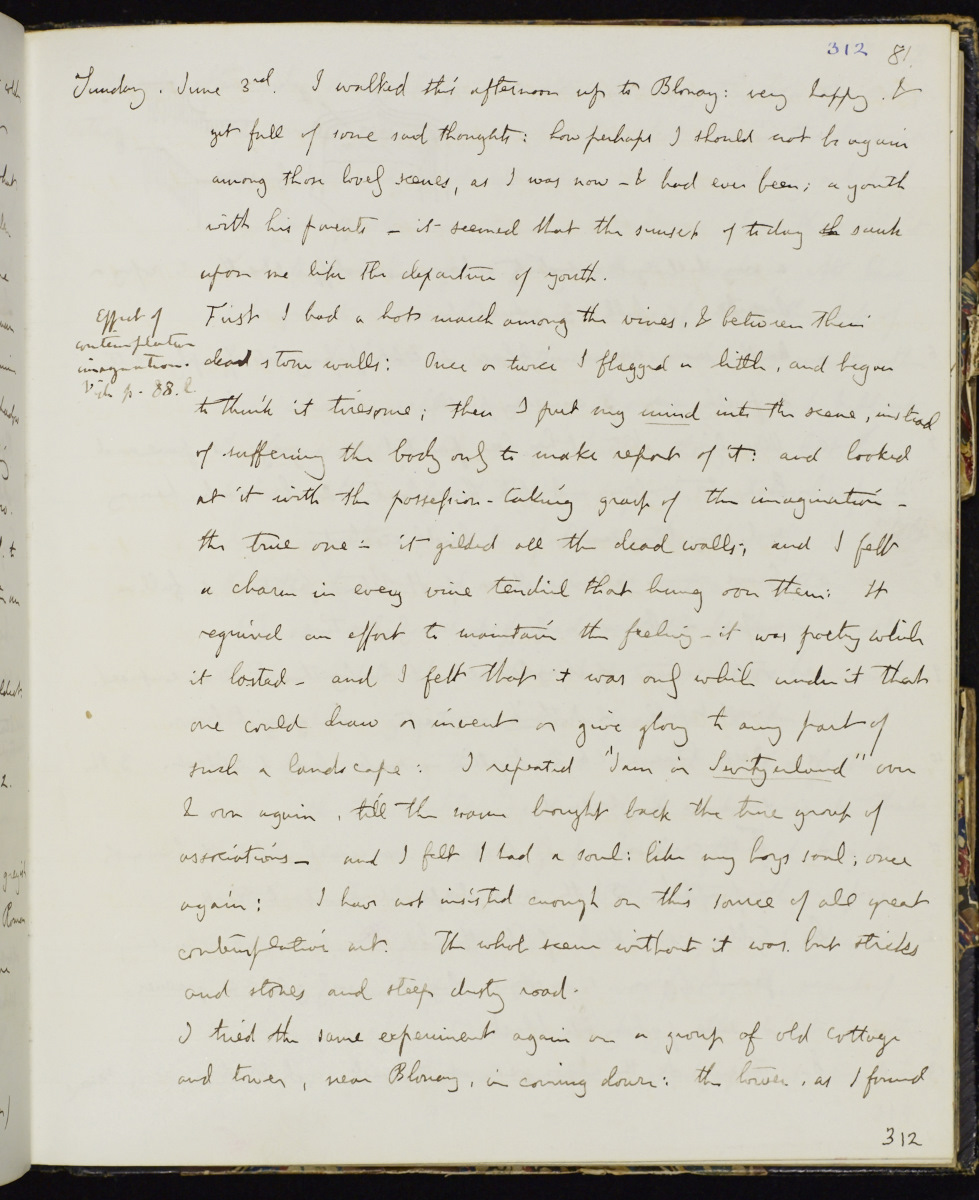 312 81.
Sunday. June 3rd. I walked this afternoon up to Blonay: very happy. &
yet full of some sad thoughts: how perhaps I should not be again
among those lovely scenes, as I was now - & had ever been; a youth
with his parents - it seemed that the sunset of today sunk
upon me like the departure of youth.
First I had a hot march among the vines, & between their
dead stone walls: Once or twice I flagged a little, and began
to think it tiresome; then I put my mind into the scene, instead
of suffering the body only to make report of it: and looked
at it with the possession-taking grasp of the imagination -
the true one - it gilded all the dead walls; and I felt
a charm in every vine tendril that hung over them: It
required an effort to maintain the feeling - it was poetry while
it lasted - and I felt that it was only while under it that
one could draw or invent or give glory to any part of
such a landscape: I repeated "I am in Switzerland" over
& over again, till the name brought back the true group of
associations - and I felt I had a soul: like my boys soul; once
again: I have not insisted enough on this source of all great
contemplative art. The whole scene without it was but sticks
and stones and steep dusty road.
I tried the same experiment again on a group of old cottage
and tower, near Blonay, in coming down: the tower, as I found
Effect of
contemplative
imagination.
Vide p. 88. l.
312